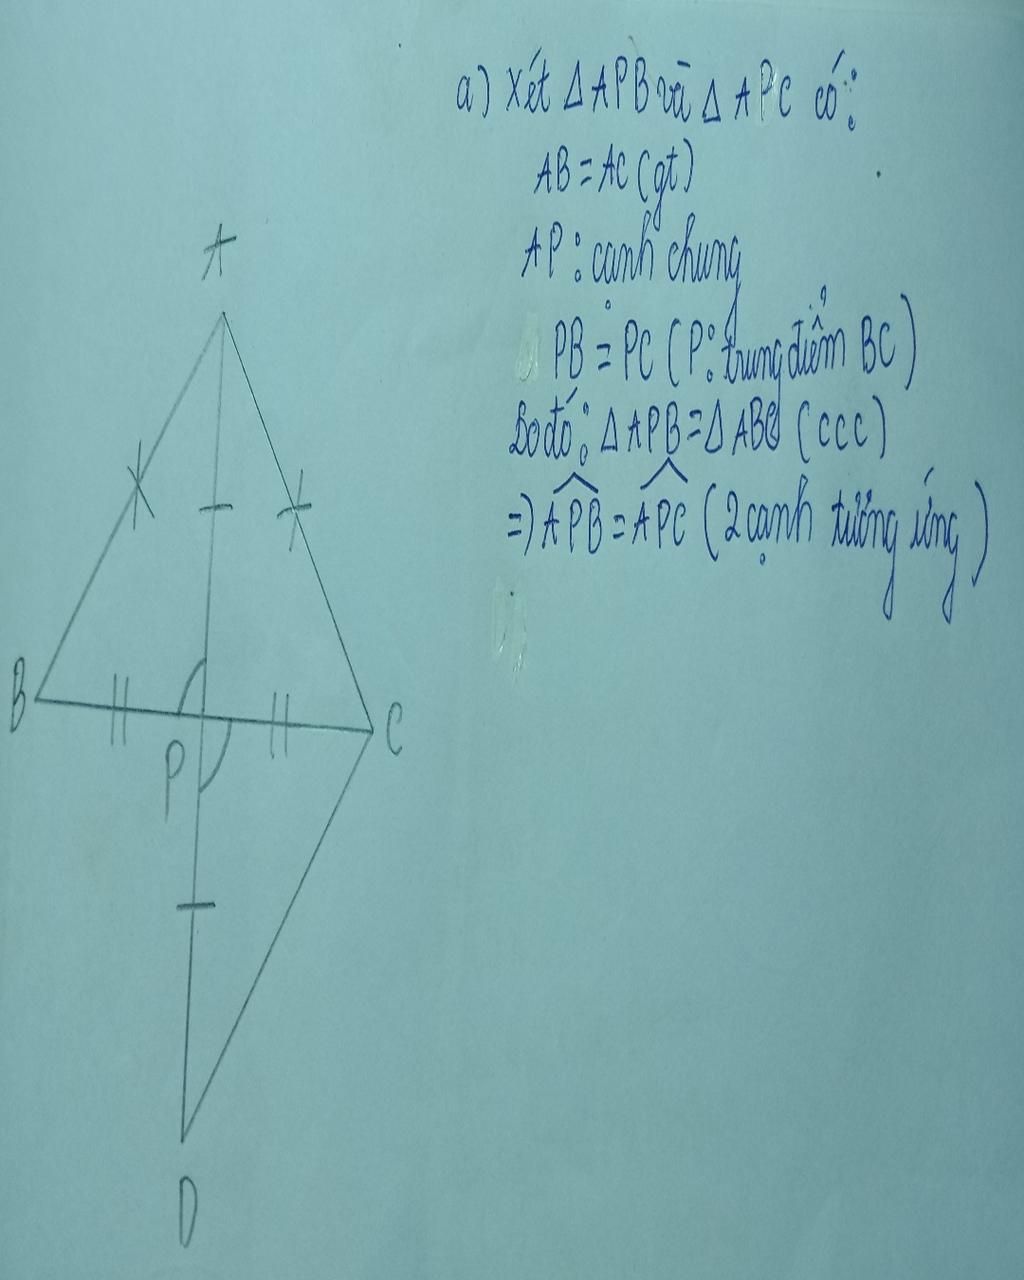 a) Xét Δ APB và Δ APC có:
AB = AC (gt)
AP : cạnh chung
PB = PC (P: trung điểm BC)
Do đó: Δ APB = Δ ABC (ccc)
=) APB = APC (2 cạnh tương ứng)
A
B
C
P
D